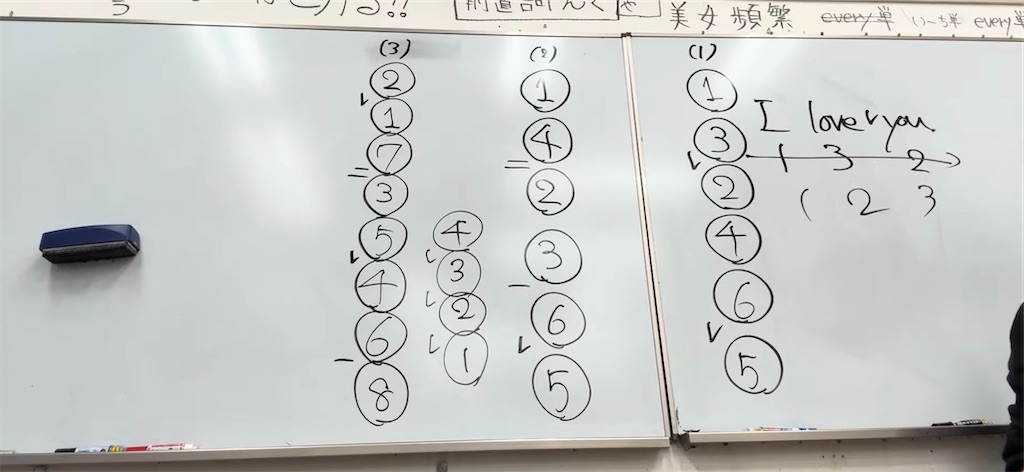 美女頻繁 every単 いーち単 every単
(1)
①
③
レ
②
④
⑥
レ
⑤
I love you
1 3 2
1 2 3
(2)
①
④
二
②
③
一
⑥
レ
⑤
④
レ
③
レ
②
レ
①
(3)
②
レ
①
⑦
二
③
⑤
レ
④
⑥
一
⑧